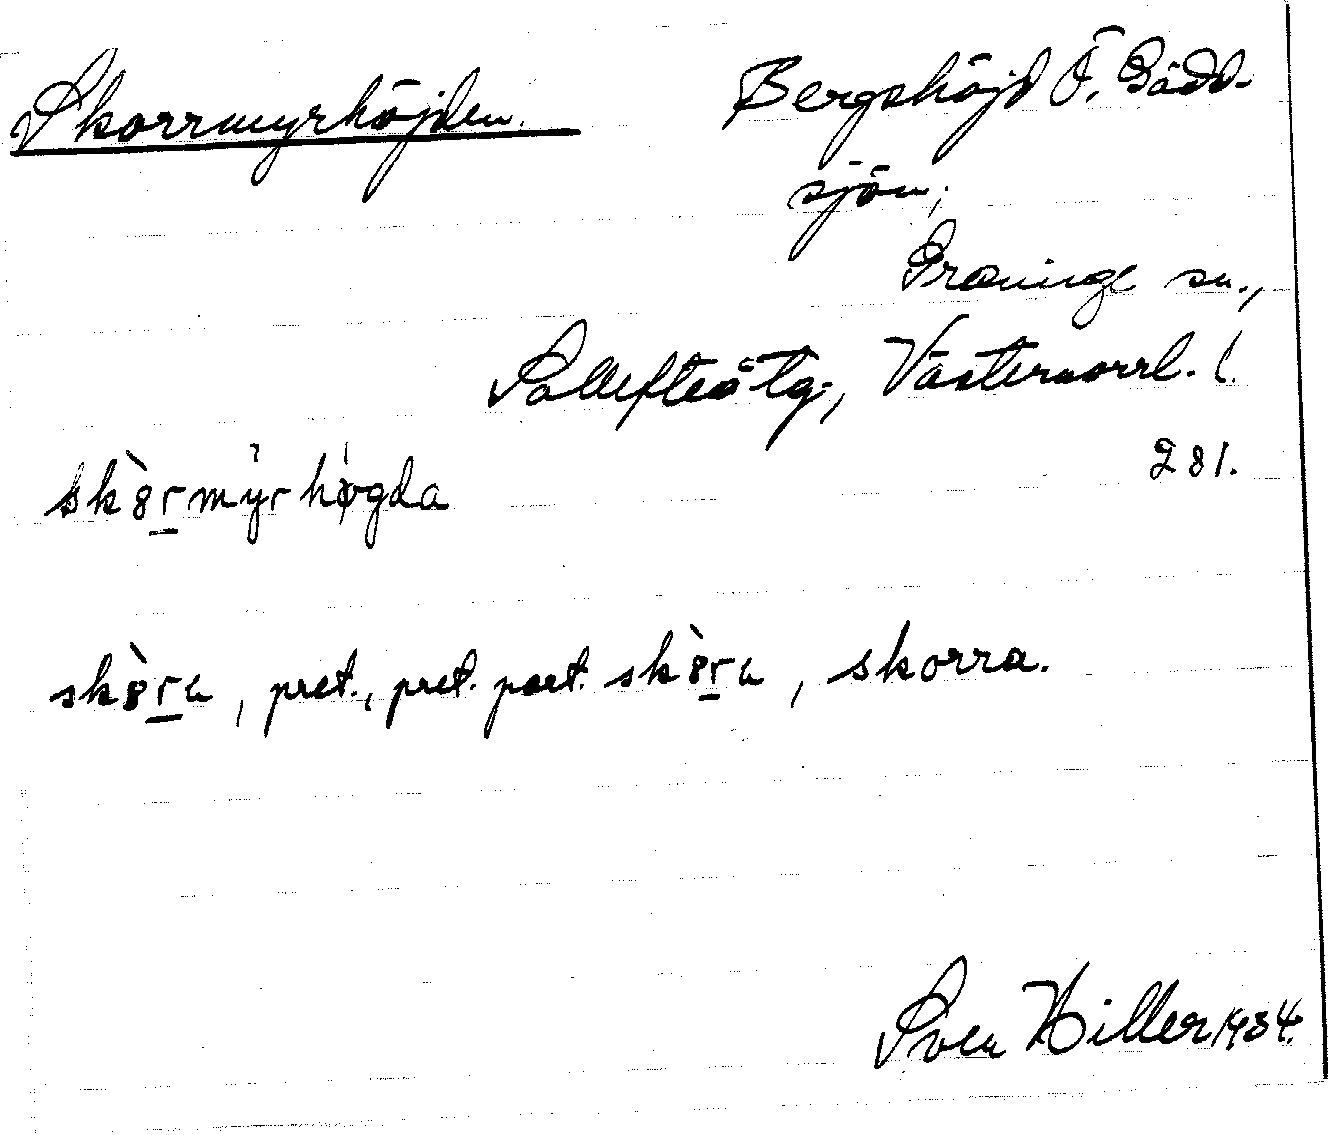 Skorrmyrhöjden. Bergshöjd Ö. Gådd-
sjön;
Graninge sn.,
Sollefteå tg., Västernorrl. l.
281.
skȍr̲my̍rhøgda
skòr̲a, pret., pret. part. skòr̲a, skorra.
Sven Hiller 1934.